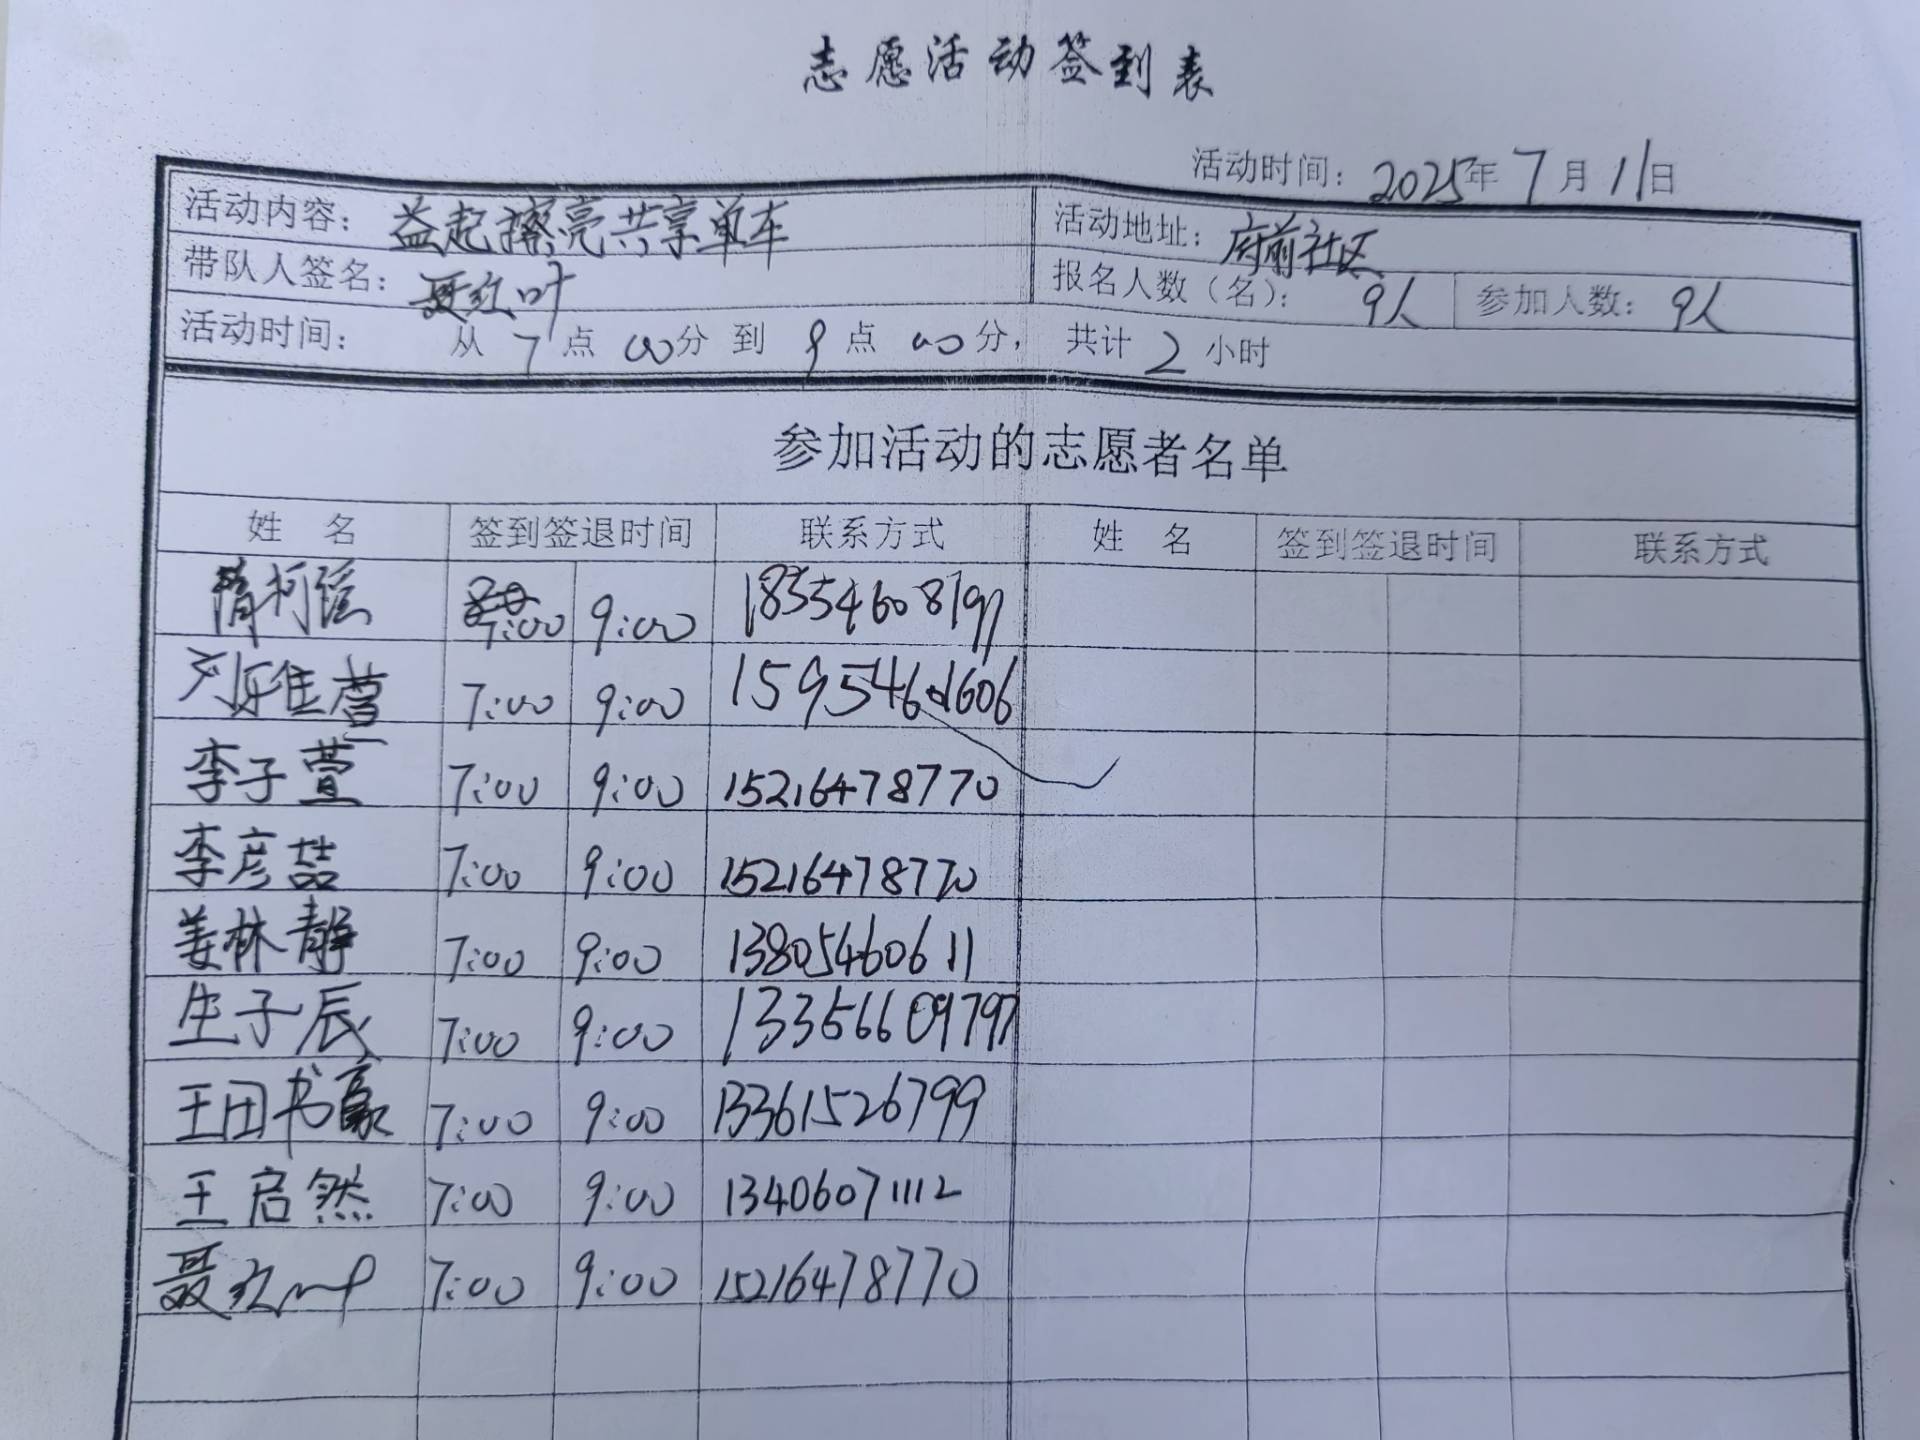 志愿活动签到表
活动时间：2025年7月11日
活动内容：益起擦亮共享单车 活动地址：府前社区
带队人签名：聂红叶 报名人数（名）：9人 参加人数：9人
活动时间： 从7点00分到9点00分，共计2小时
参加活动的志愿者名单
姓 名 签到签退时间 联系方式 姓 名 签到签退时间 联系方式
隋柯瑶 7:00 9:00 18354608197
刘雅萱 7:00 9:00 15954601606
李子萱 7:00 9:00 15216478770
李彦喆 7:00 9:00 15216478770
姜林静 7:00 9:00 13805460611
生子辰 7:00 9:00 13356609797
王田书豪 7:00 9:00 13361526799
王启然 7:00 9:00 13406071112
聂红叶 7:00 9:00 15216478770